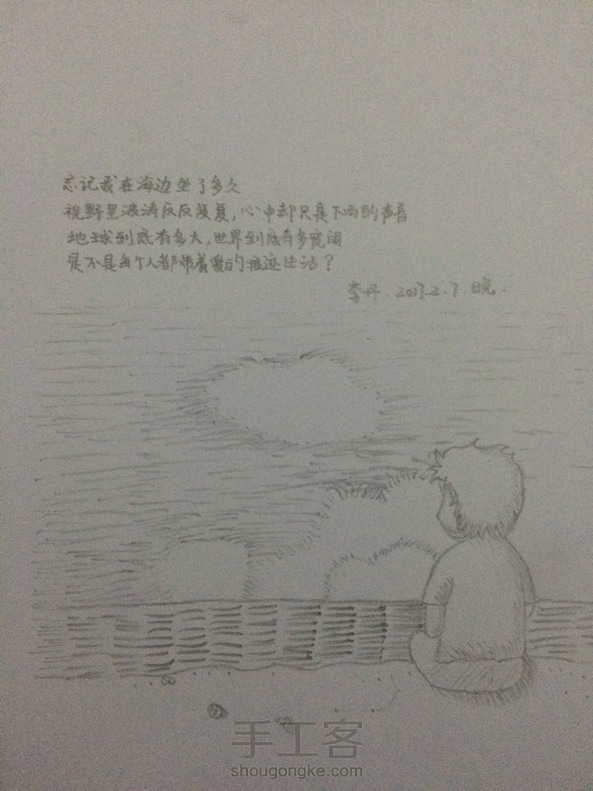 忘记我在海边坐了多久
视野里波涛反反复复,心中却只是下雨的声音
地球到底有多大,世界到底有多宽阔
是不是每个人都带着爱的痕迹生活?
李丹.2017.2.7.晚.
手工客
shougongke.com